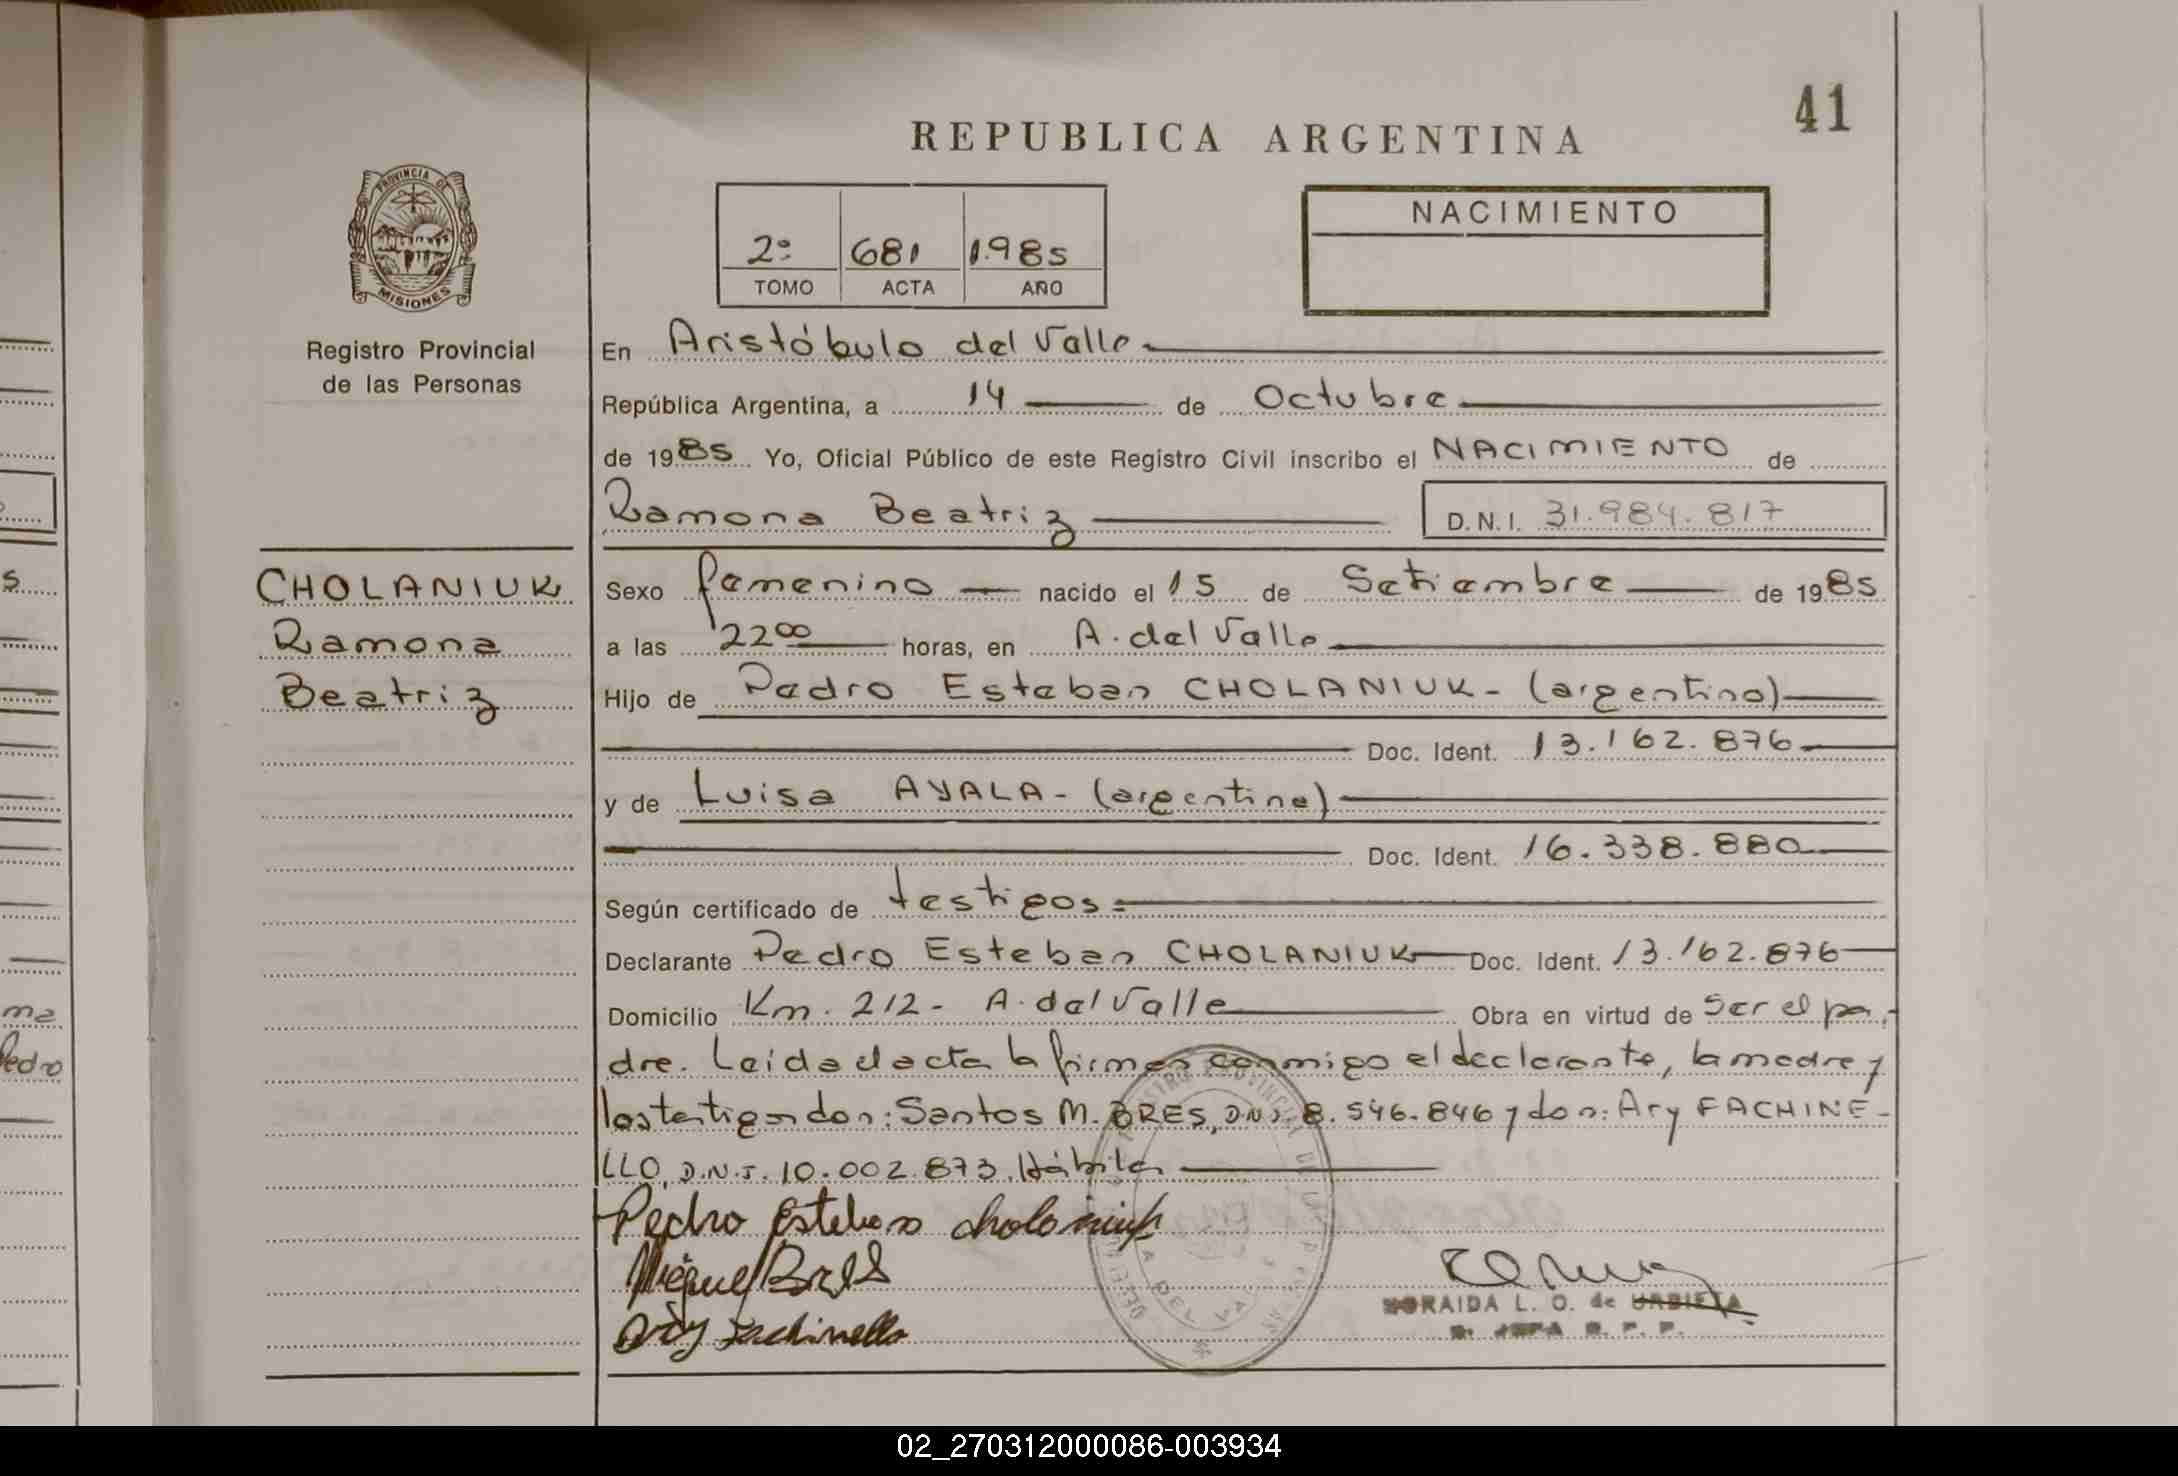 41
REPUBLICA ARGENTINA
PROVINCIA DE
MISIONES
Registro Provincial
de las Personas
2º 681 1.985
TOMO ACTA AÑO
NACIMIENTO
En Aristóbulo del Valle
República Argentina, a 14 de Octubre
de 1985 Yo, Oficial Público de este Registro Civil inscribo el NACIMIENTO de
Ramona Beatriz D.N.I. 31.984.817
CHOLANIUK
Ramona
Beatriz
Sexo femenino nacido el 15 de Setiembre de 1985
a las 2200 horas, en A. del Valle
Hijo de Pedro Esteban CHOLANIUK - (argentino)
Doc. Ident. 13.162.876
y de Luisa AYALA - (argentina)
Doc. Ident. 16.338.880
Según certificado de testigos.
Declarante Pedro Esteban CHOLANIUK Doc. Ident. 13.162.876
Domicilio Km. 212 - A. del Valle Obra en virtud de Ser el pa-
dre. Leida el acta la firman conmigo el declarante, la madre y
los testigos don: Santos M. BRES, D.N.I. 8.546.846 y don: Ary FACHINE-
LLO, D.N.I. 10.002.873. Hábiles
Pedro Esteban Cholaniuk
Miguel Bres
Ary Fachinello
NORAIDA L. O. de URBIETA
JEFA R. P. P.
s
ma
Pedro
02_270312000086-003934